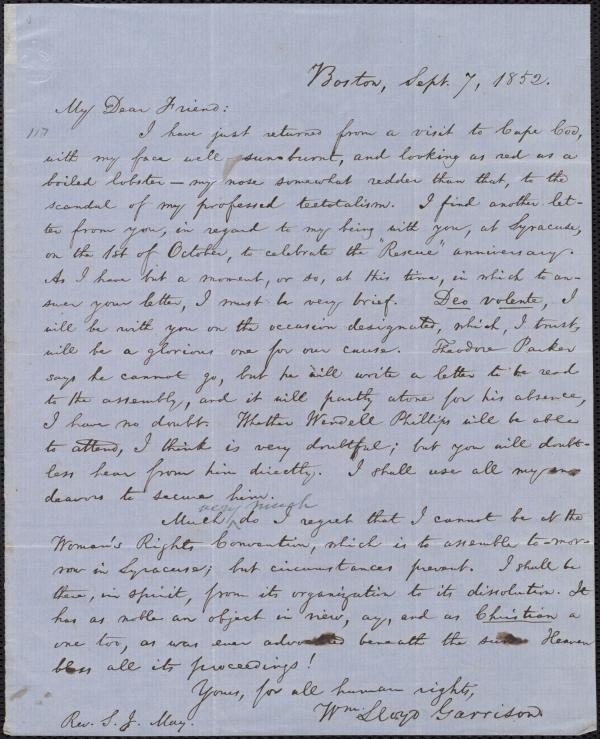 Boston, Sept. 7, 1852.
My Dear Friend:
117
I have just returned from a visit to Cape Cod,
with my face well sunburnt, and looking as red as a
boiled lobster — my nose somewhat redder than that, to the
scandal of my professed teetotalism. I find another let-
ter from you, in regard to my being with you, at Syracuse,
on the 1st of October, to celebrate the "Rescue" anniversary.
As I have but a moment, or so, at this time, in which to an-
swer your letter, I must be very brief. Deo volente, I
will be with you on the occasion designated, which, I trust,
will be a glorious one for our cause. Theodore Parker
says he cannot go, but he will write a letter to be read
to the assembly, and it will partly atone for his absence,
I have no doubt. Whether Wendell Phillips will be able
to attend, I think is very doubtful; but you will doubt-
less hear from him directly. I shall use all my en
deavors to secure him.
very much
Much do I regret that I cannot be at the
Woman's Rights Convention, which is to assemble to-mor-
row in Syracuse; but circumstances prevent. I shall be
there, in spirit, from its organization to its dissolution. It
has as noble an object in view, ay, and as Christian a
one too, as was ever advocated beneath the sun. Heaven
bless all its proceedings!
Yours, for all human rights,
Wm. Lloyd Garrison
Rev. S. J. May.